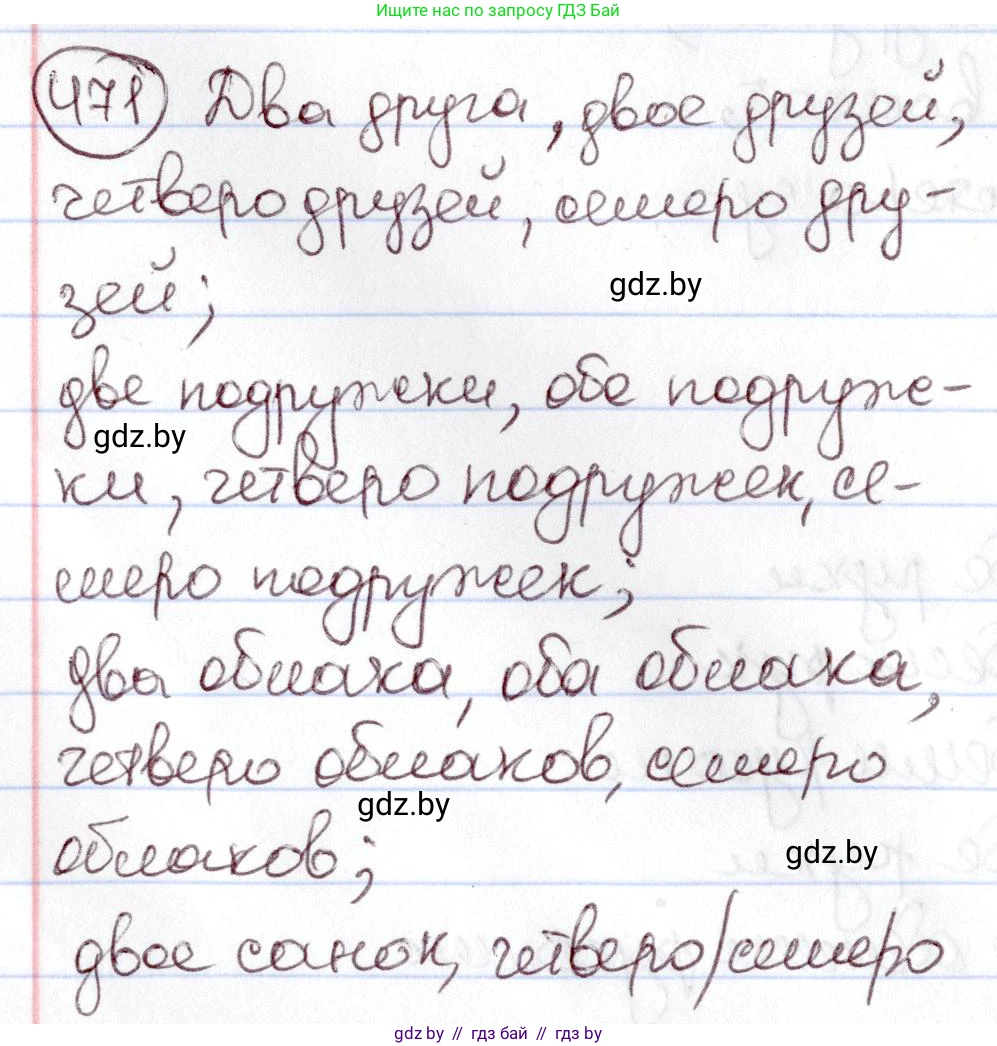 Ищите нас по запросу ГДЗ Бай
471 Два друга, двое друзей,
четверо друзей, семеро дру-
зей;
gdz.by
две подружки, обе подруж-
gdz.by
ки, четверо подружек, се-
меро подружек;
два облака, оба облака,
четверо облаков, семеро
gdz.by
облаков;
gdz.by
двое санок, четверо/семеро
gdz.by // гдз бай // гдз by